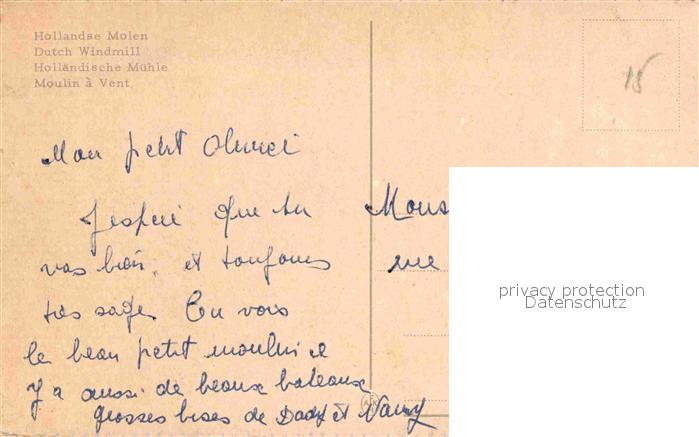 Hollandse Molen
Dutch Windmill
Holländische Mühle
Moulin à Vent
18
Mon petit Olivier
J'espère que tu
vas bien, et toujours
très sage. Tu vois
le beau petit moulin il
y a aussi de beaux bateaux
grosses bises de Dady et Nany
Mons
rue
privacy protection
Datenschutz